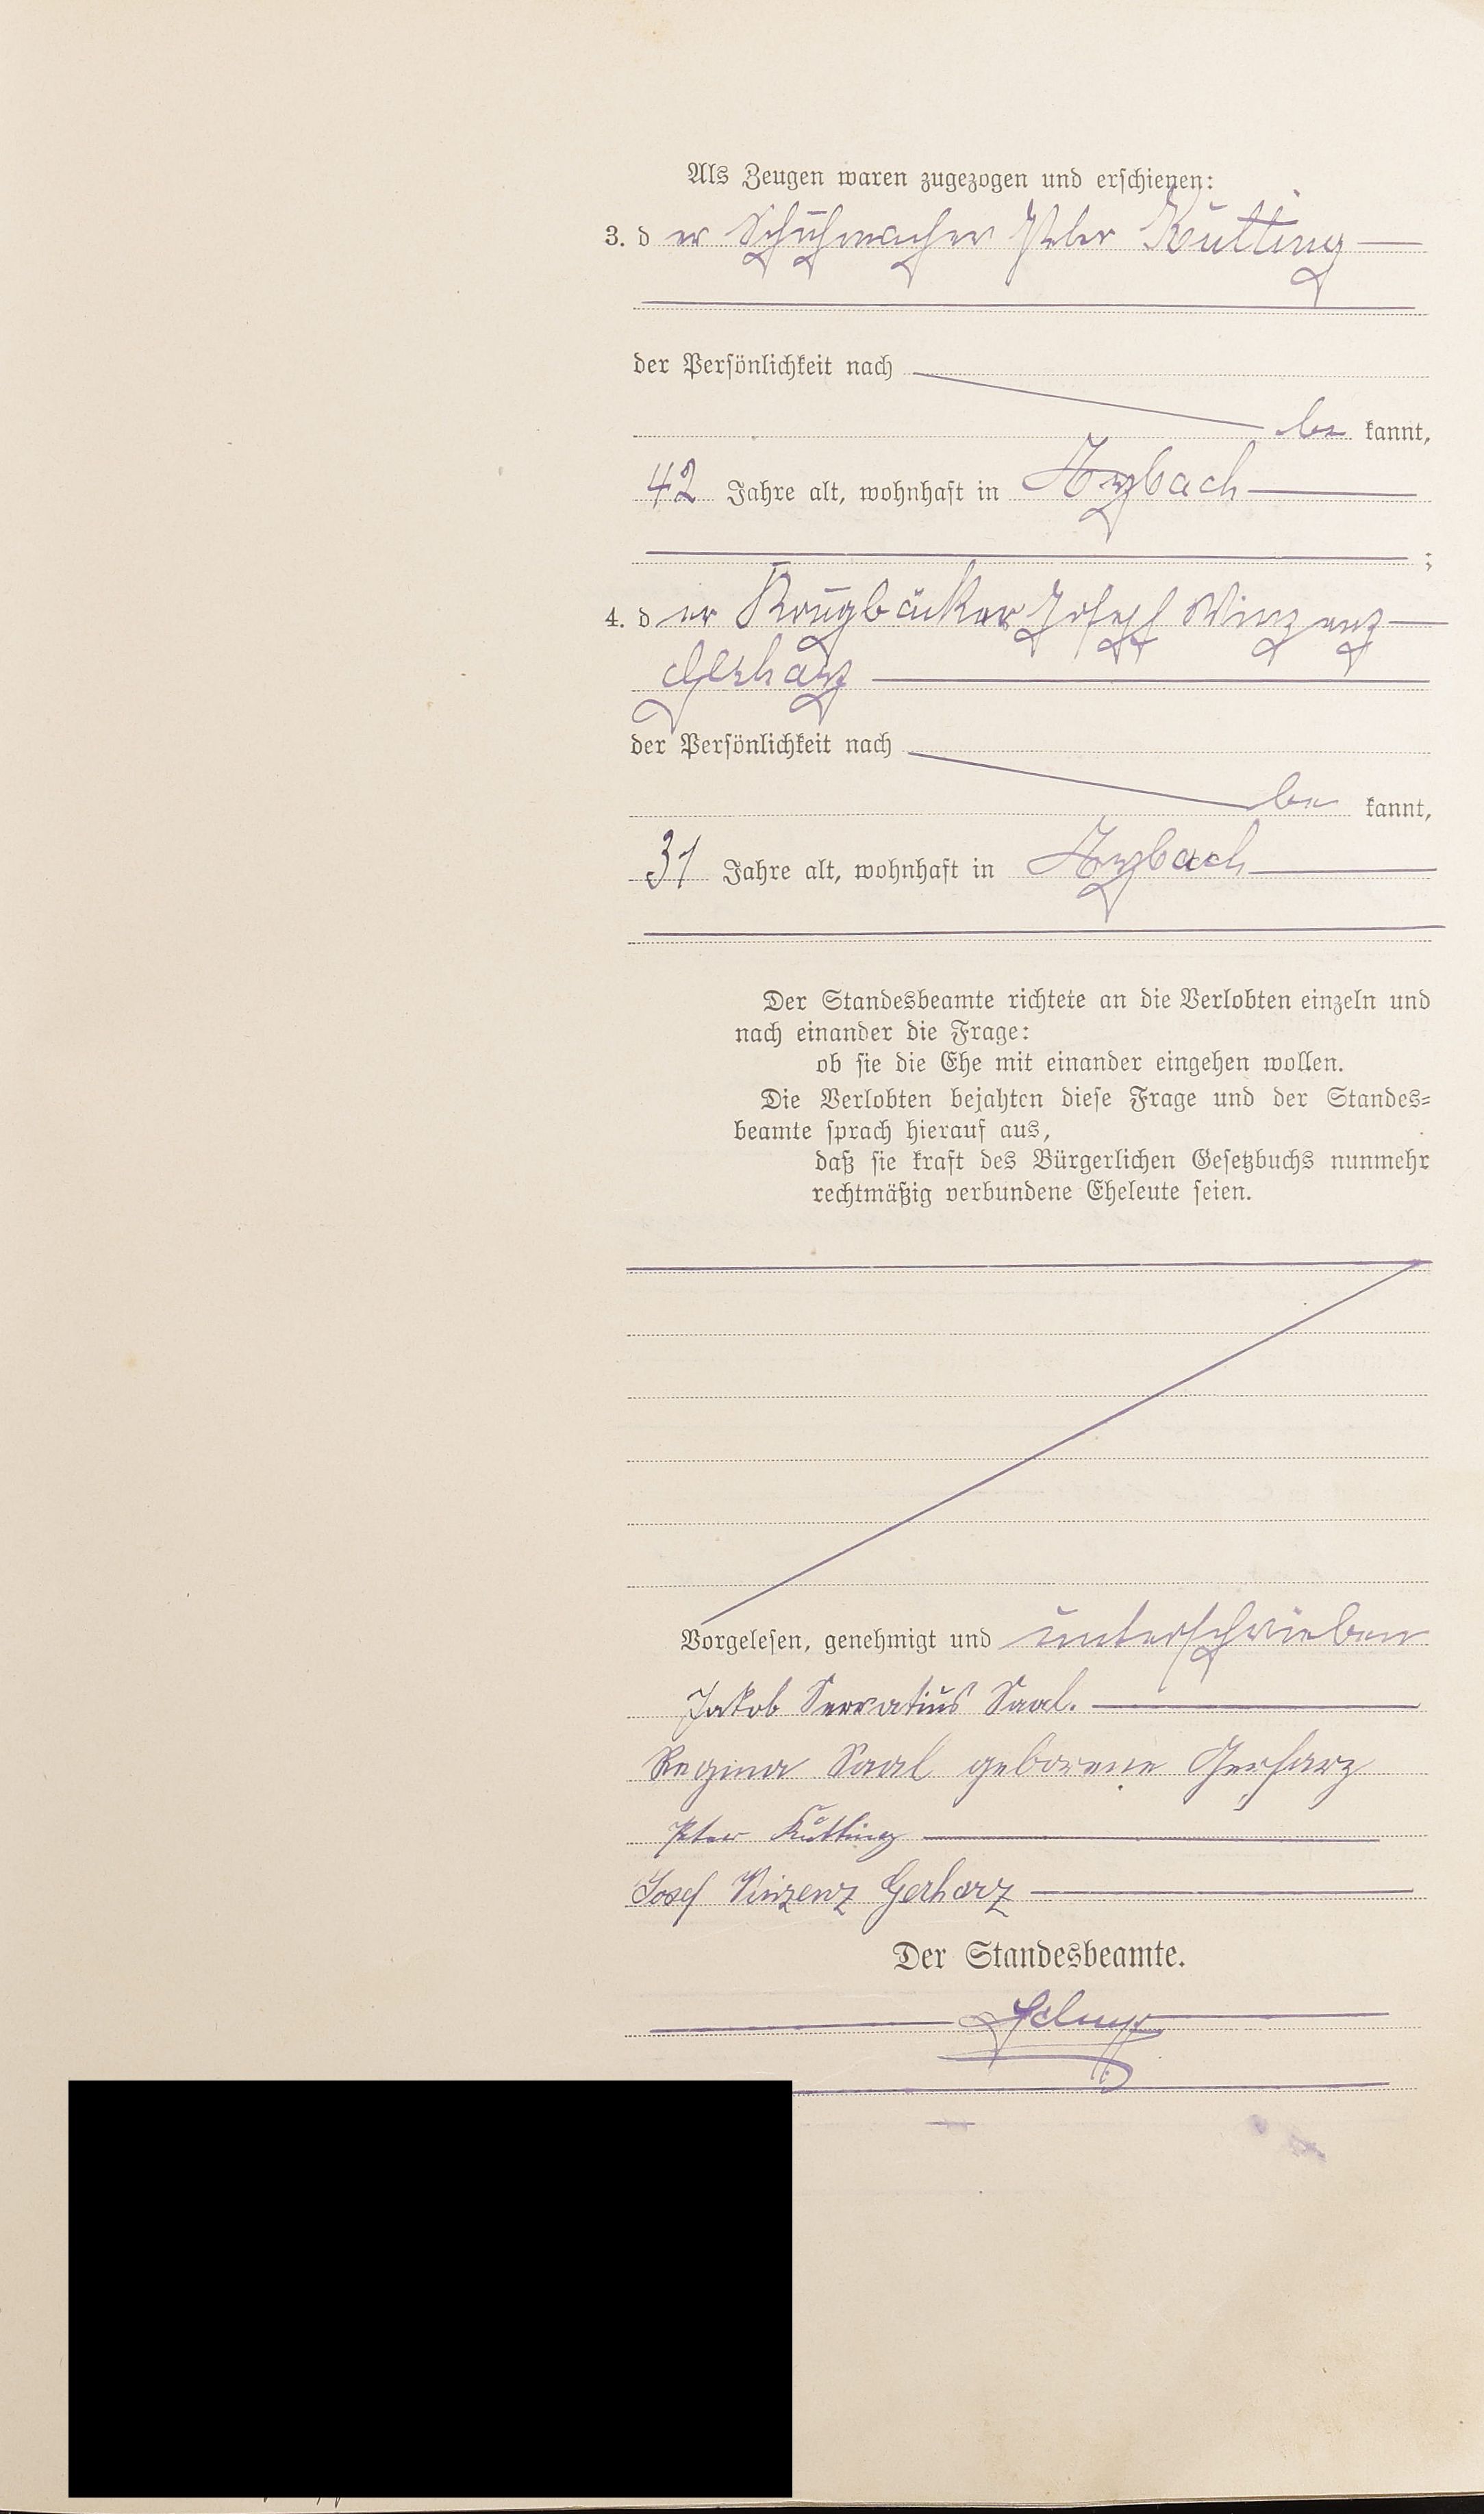 Als Zeugen waren zugezogen und erschienen:
3. der Schuhmacher Peter Kütting
der Persönlichkeit nach
bekannt,
42 Jahre alt, wohnhaft in Arzbach
;
4. der Krugbäcker Joseph Vinzenz
Gerharz
der Persönlichkeit nach
bekannt,
31 Jahre alt, wohnhaft in Arzbach
Der Standesbeamte richtete an die Verlobten einzeln und
nach einander die Frage:
ob sie die Ehe mit einander eingehen wollen.
Die Verlobten bejahten diese Frage und der Standes-
beamte sprach hierauf aus,
daß sie kraft des Bürgerlichen Gesetzbuchs nunmehr
rechtmäßig verbundene Eheleute seien.
Vorgelesen, genehmigt und unterschrieben
Jakob Servatius Saal.
Regina Saal geborene Gerharz
Peter Kütting
Josef Vinzenz Gerharz
Der Standesbeamte.